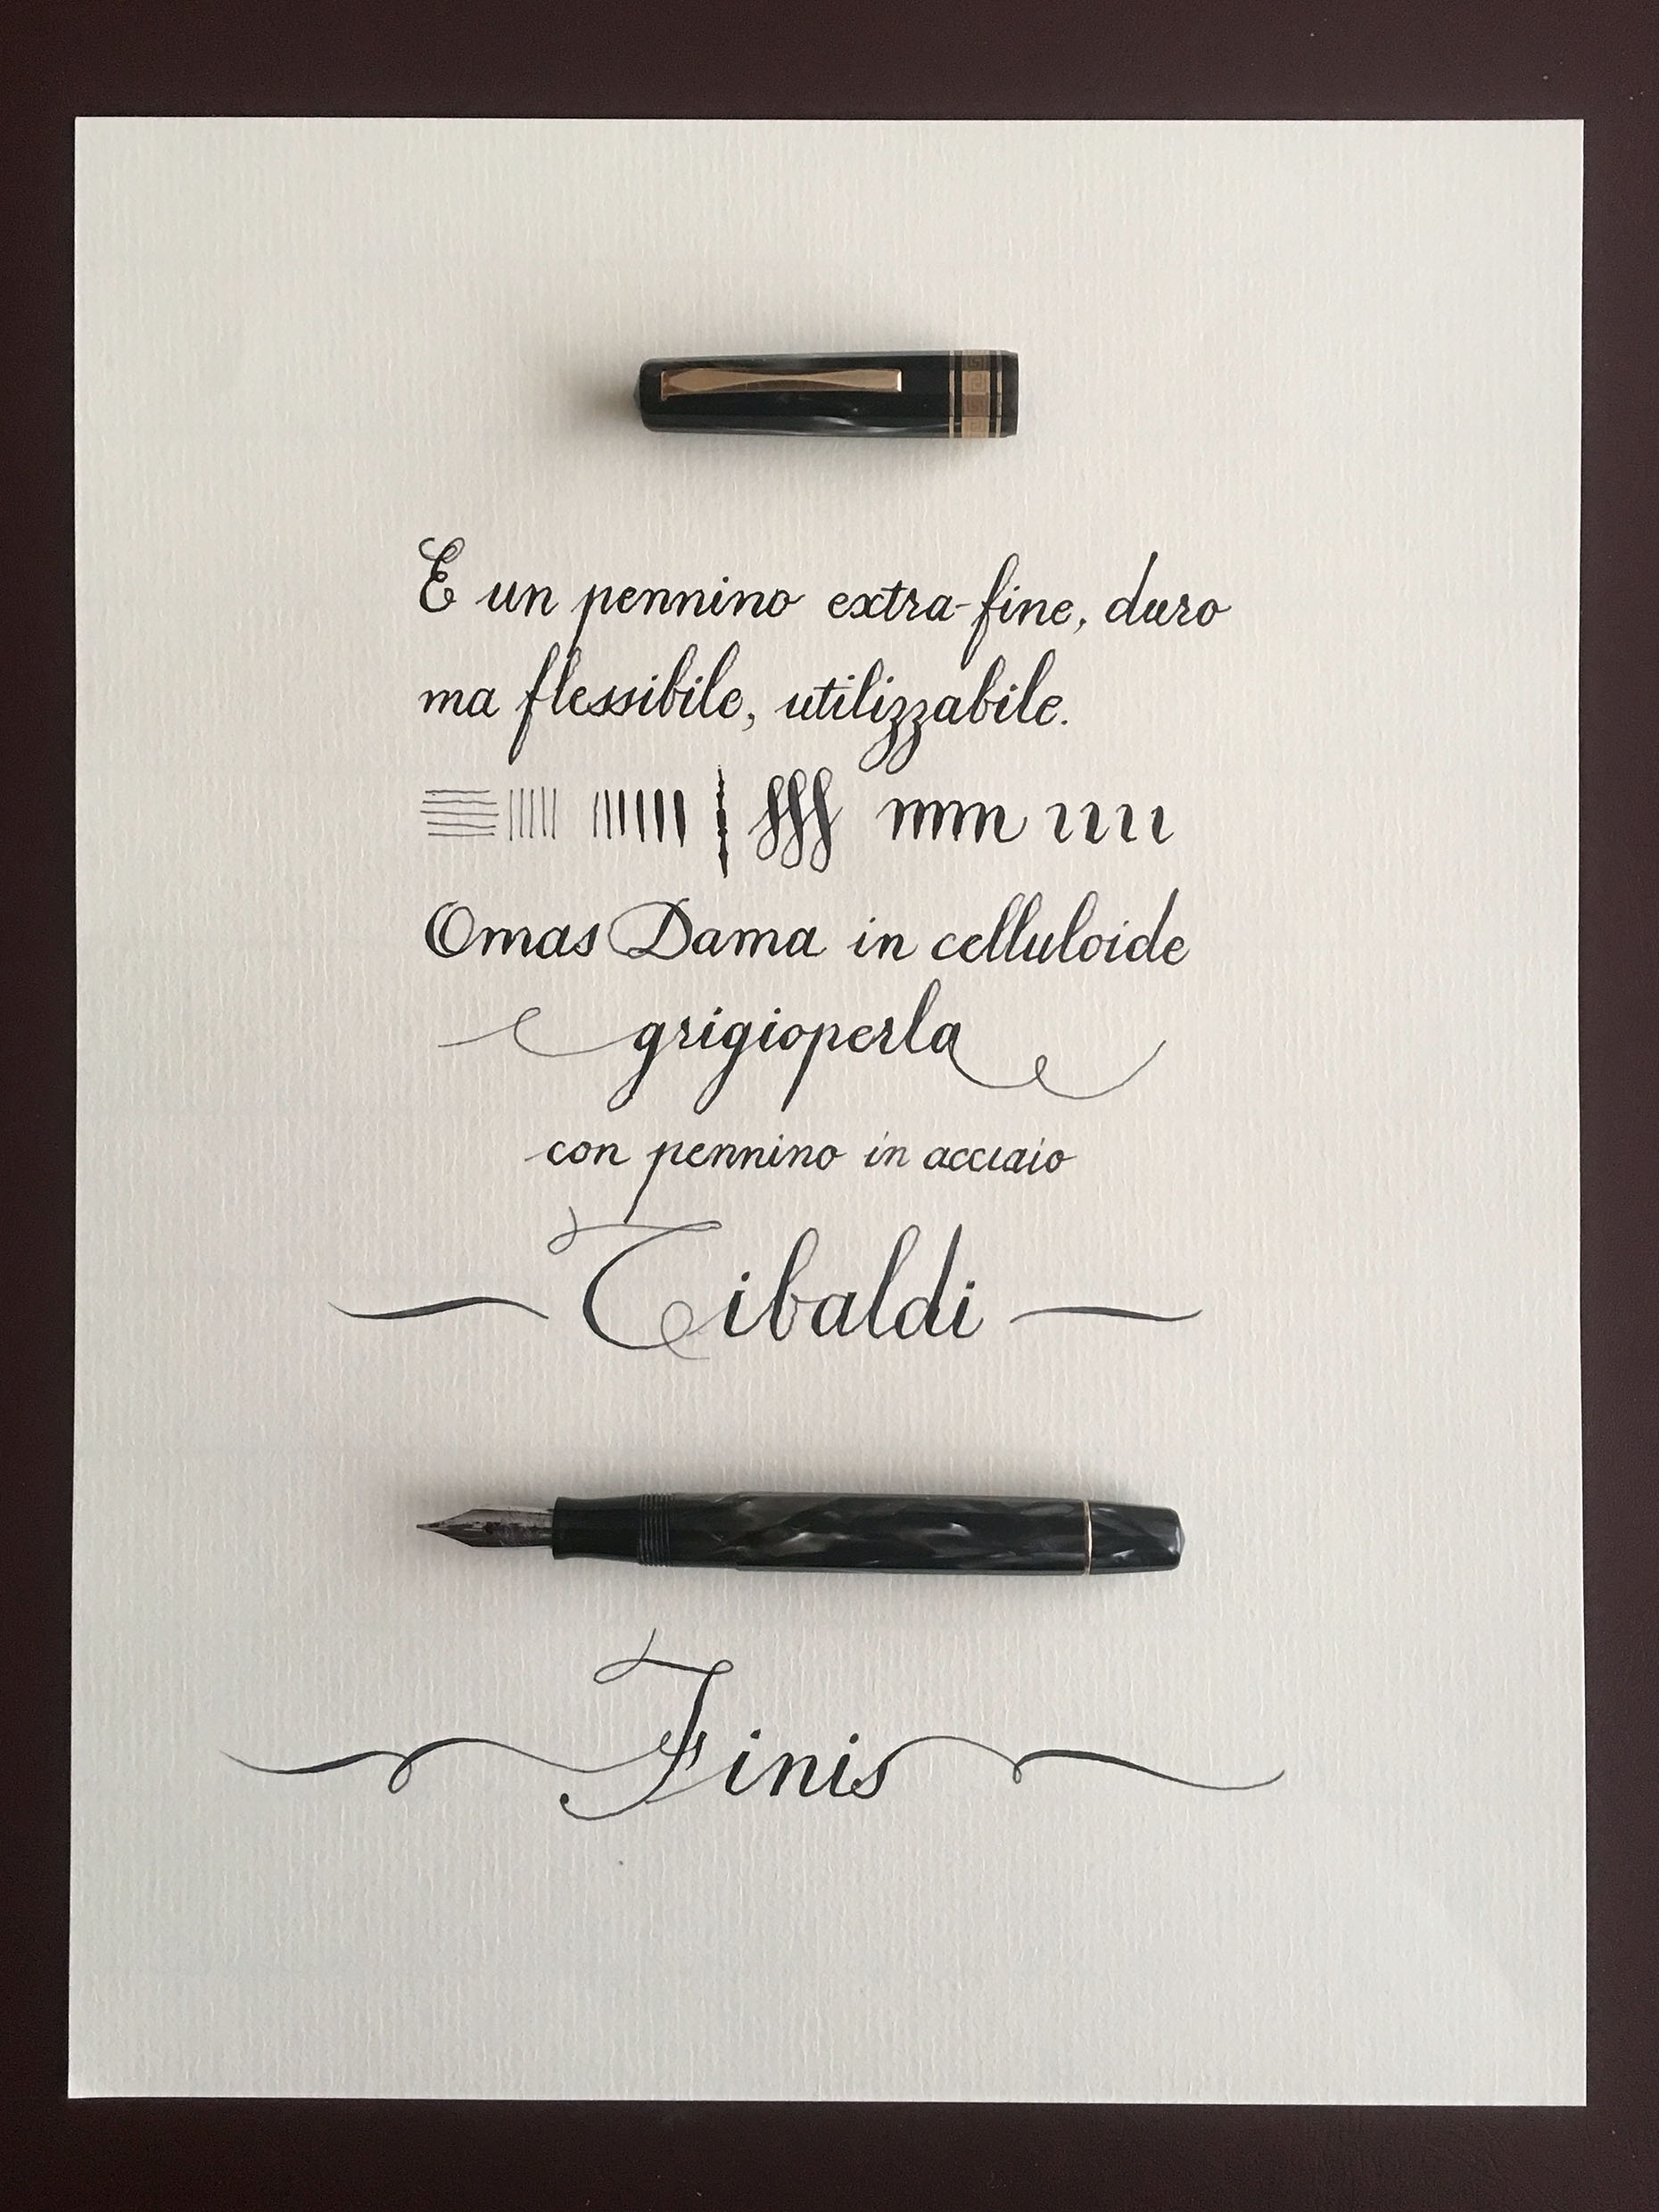 E un pennino extra-fine, duro
ma flessibile, utilizzabile.
Omas Dama in celluloide
grigioperla
con pennino in acciaio
Tibaldi
Finis